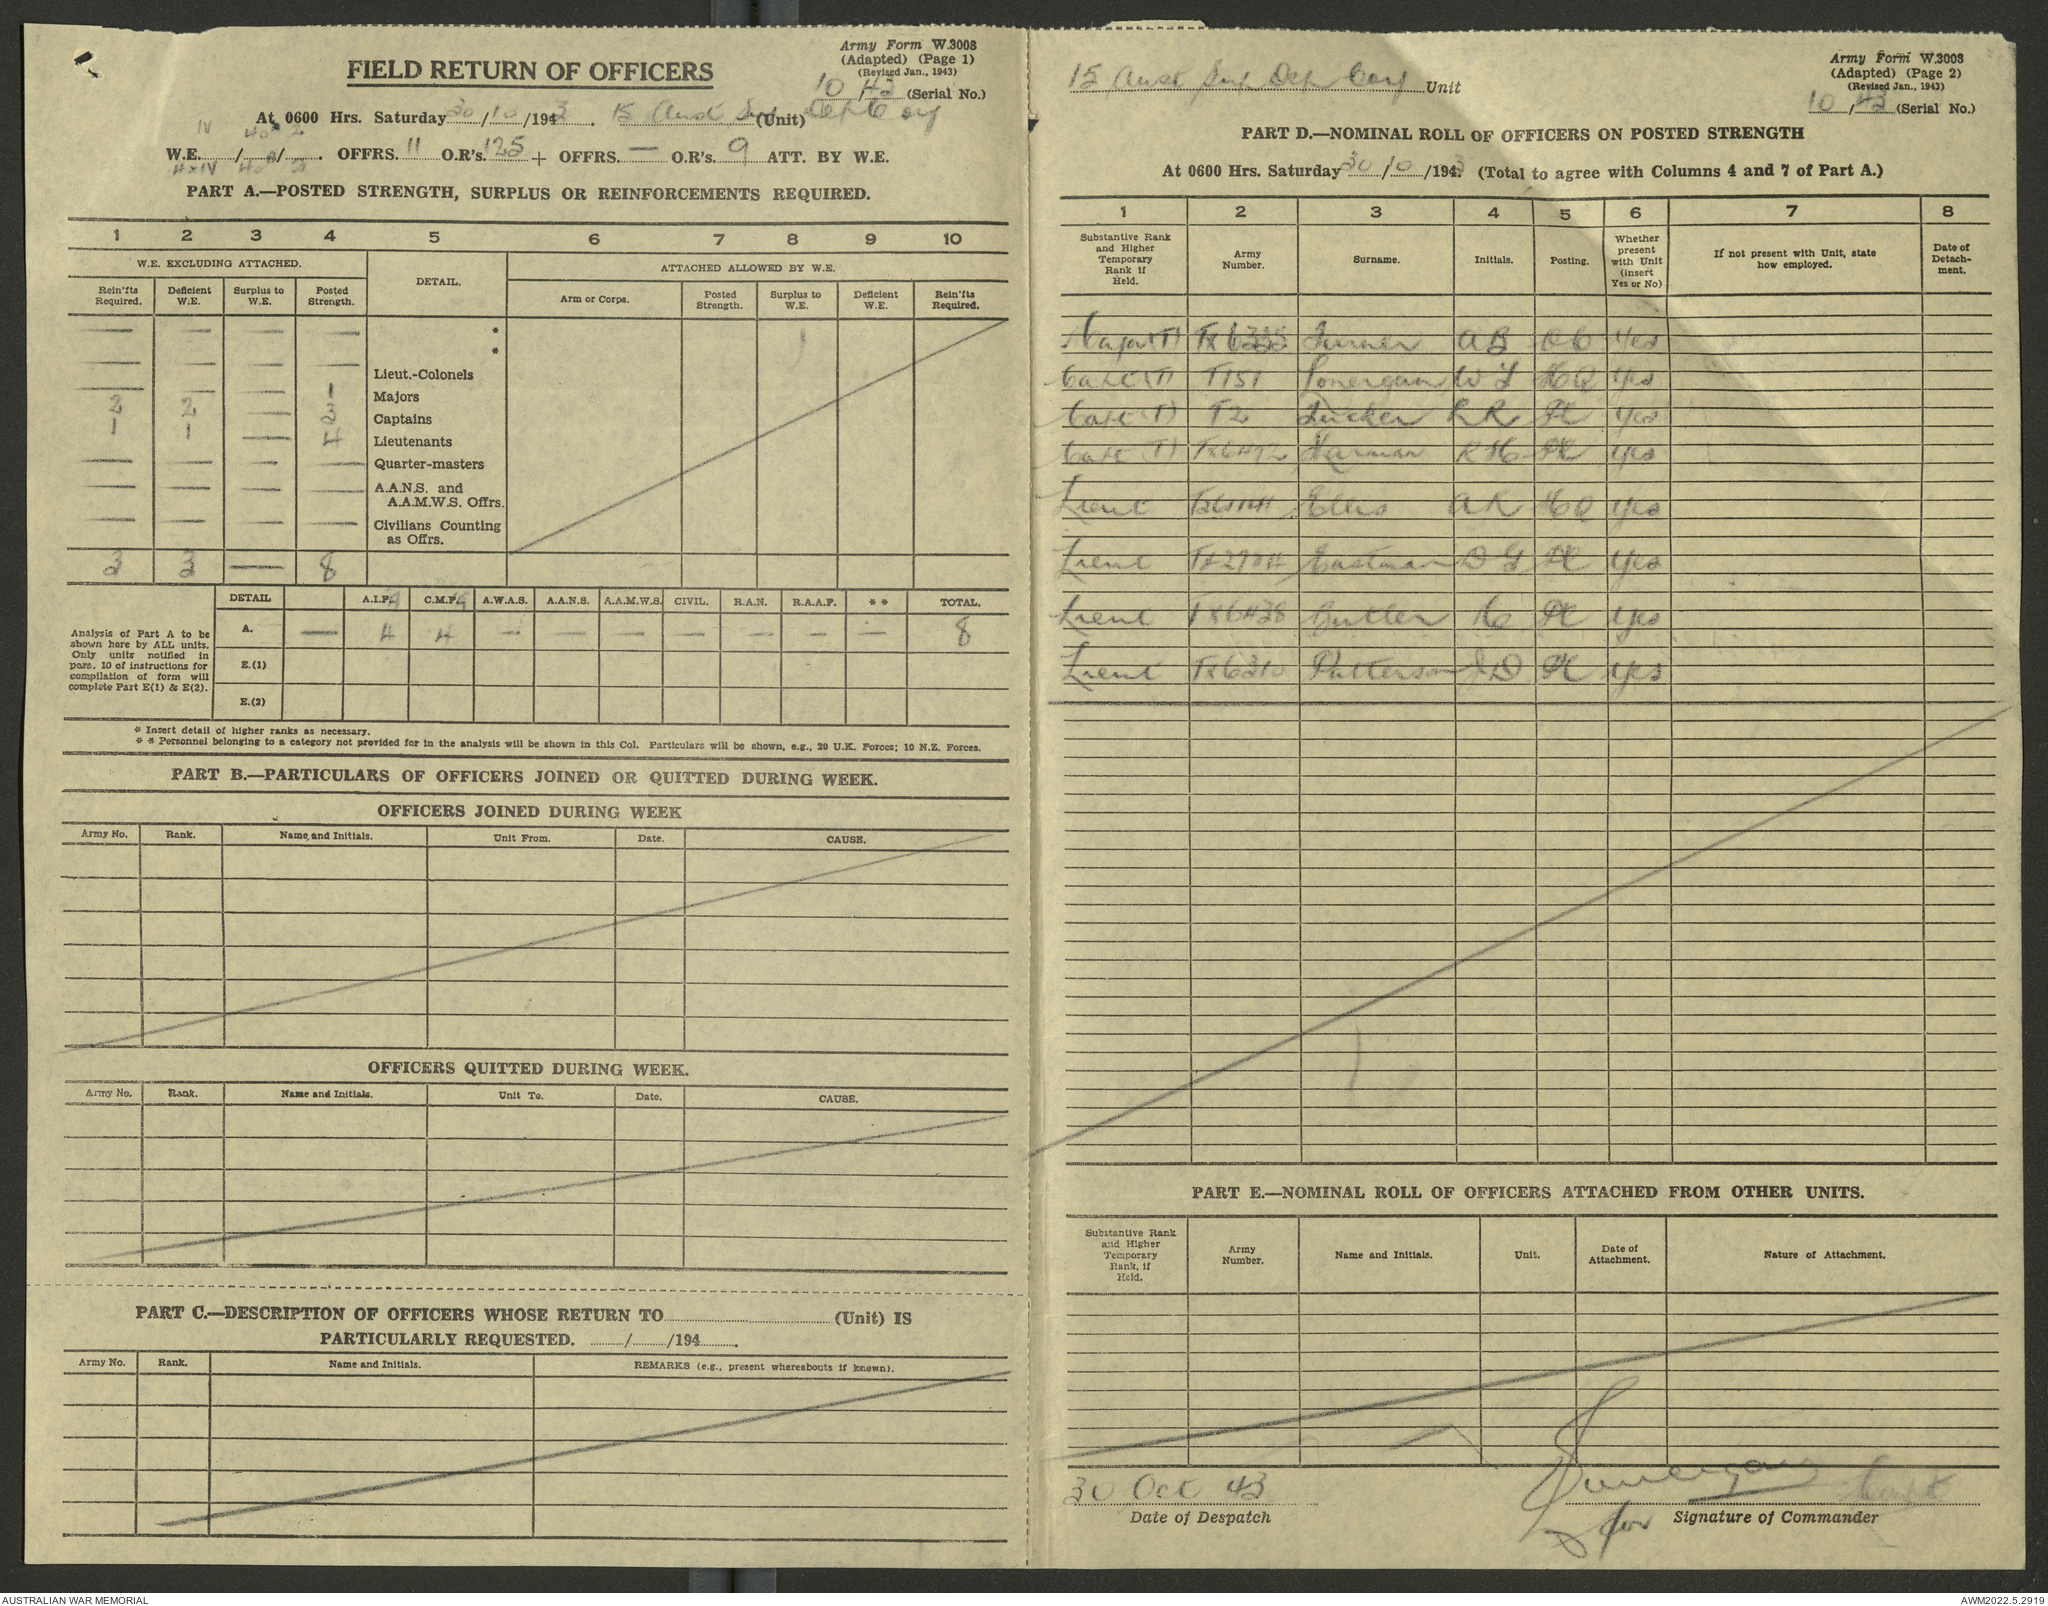 Army Form W.3008
(Adapted) (Page 1)
(Revised Jan., 1943)
FIELD RETURN OF OFFICERS
10 43 (Serial No.)
At 0600 Hrs. Saturday 30/10/1943. 15 Aust Sup (Unit) Dep Coy
IV 40 2
W.E. / / . OFFRS. 11 O.R's. 125 + OFFRS. — O.R's. 9 ATT. BY W.E.
PART A.—POSTED STRENGTH, SURPLUS OR REINFORCEMENTS REQUIRED.
1 2 3 4 5 6 7 8 9 10
W.E. EXCLUDING ATTACHED. DETAIL. ATTACHED ALLOWED BY W.E.
Rein'fts Required. Deficient W.E. Surplus to W.E. Posted Strength. Arm or Corps. Posted Strength. Surplus to W.E. Deficient W.E. Rein'fts Required.
— — — — *
— — — — *
Lieut.-Colonels
— — — 1 Majors
2 2 — 3 Captains
1 1 — 4 Lieutenants
— — — — Quarter-masters
— — — — A.A.N.S. and A.A.M.W.S. Offrs.
— — — — Civilians Counting as Offrs.
3 3 — 8
DETAIL A.I.F. C.M.F. A.W.A.S. A.A.N.S. A.A.M.W.S. CIVIL. R.A.N. R.A.A.F. * * TOTAL.
Analysis of Part A to be shown here by ALL units. Only units notified in para. 10 of instructions for compilation of form will complete Part E(1) & E(2).
A. — 4 4 — — — — — — — 8
E.(1)
E.(2)
* Insert detail of higher ranks as necessary.
* * Personnel belonging to a category not provided for in the analysis will be shown in this Col. Particulars will be shown, e.g., 20 U.K. Forces; 10 N.Z. Forces.
PART B.—PARTICULARS OF OFFICERS JOINED OR QUITTED DURING WEEK.
OFFICERS JOINED DURING WEEK
Army No. Rank. Name and Initials. Unit From. Date. CAUSE.
OFFICERS QUITTED DURING WEEK.
Army No. Rank. Name and Initials. Unit To. Date. CAUSE.
PART C.—DESCRIPTION OF OFFICERS WHOSE RETURN TO (Unit) IS
PARTICULARLY REQUESTED. / /194 .
Army No. Rank. Name and Initials. REMARKS (e.g., present whereabouts if known).
Army Form W.3008
(Adapted) (Page 2)
(Revised Jan., 1943)
15 Aust Sup Dep Coy Unit
10/43 (Serial No.)
PART D.—NOMINAL ROLL OF OFFICERS ON POSTED STRENGTH
At 0600 Hrs. Saturday 30/10/1943 (Total to agree with Columns 4 and 7 of Part A.)
1 2 3 4 5 6 7 8
Substantive Rank and Higher Temporary Rank if Held. Army Number. Surname. Initials. Posting. Whether present with Unit (insert Yes or No) If not present with Unit, state how employed. Date of Detachment.
Major (T) Turner A B OC Yes
Capt (T) T151 Lonergan W L HQ Yes
Capt (T) T2 Tucker L R Pl Yes
Capt (T) TX6492 Harman R H Pl Yes
Lieut Ellis A R HQ Yes
Lieut Eastman D G Pl Yes
Lieut TX6438 Butler K Pl Yes
Lieut TX6310 Patterson J D Pl Yes
PART E.—NOMINAL ROLL OF OFFICERS ATTACHED FROM OTHER UNITS.
Substantive Rank and Higher Temporary Rank, if Held. Army Number. Name and Initials. Unit. Date of Attachment. Nature of Attachment.
30 Oct 43
Date of Despatch
Lonergan Capt
for Signature of Commander
AUSTRALIAN WAR MEMORIAL
AWM2022.5.2919